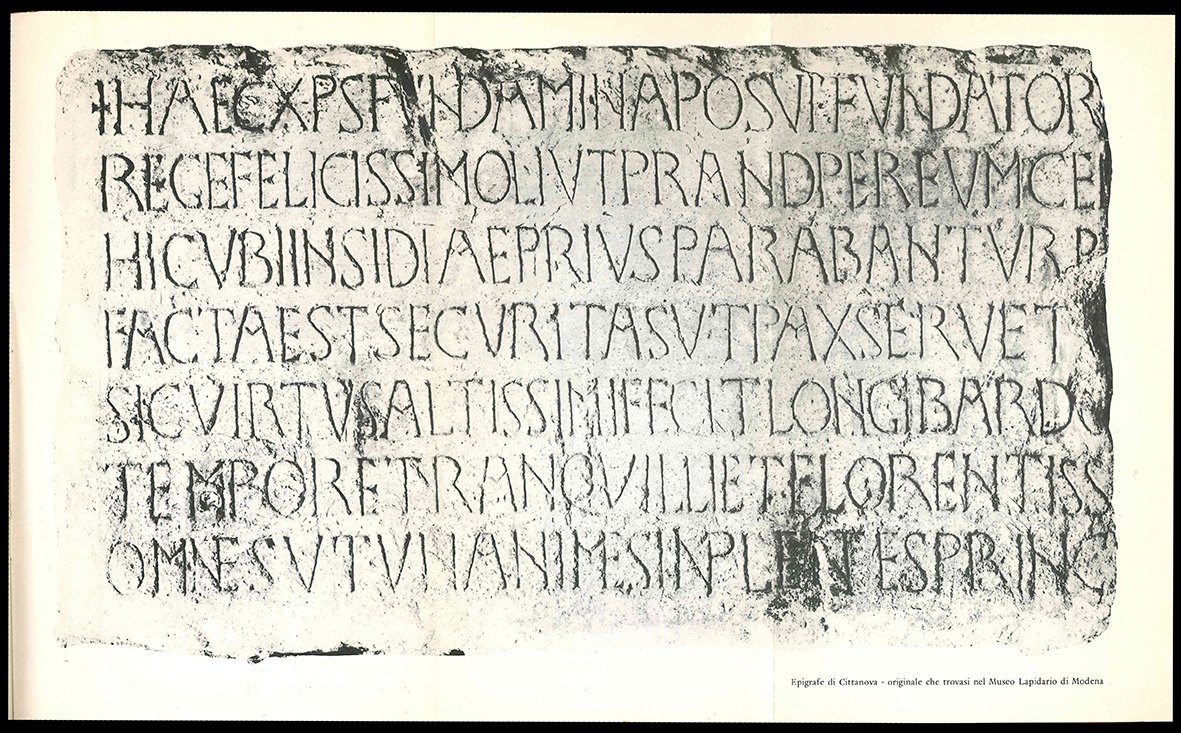 +HAECXPSFVNDAMINAPOSVITFVNDATOR
REGEFELICISSIMOLIVTPRANDPEREVMCE
HICVBIINSIDIAEPRIVSPARABANTVRP
FACTAESTSECVRITASVTPAXSERVET
SICVIRTVSALTISSIMIFECITLONGIBARDO
TEMPORETRANQVILLIETFLORENTISS
OMNESVTVNIANIMESINPLENTESPRINC
Epigrafe di Cittanova - originale che trovasi nel Museo Lapidario di Modena